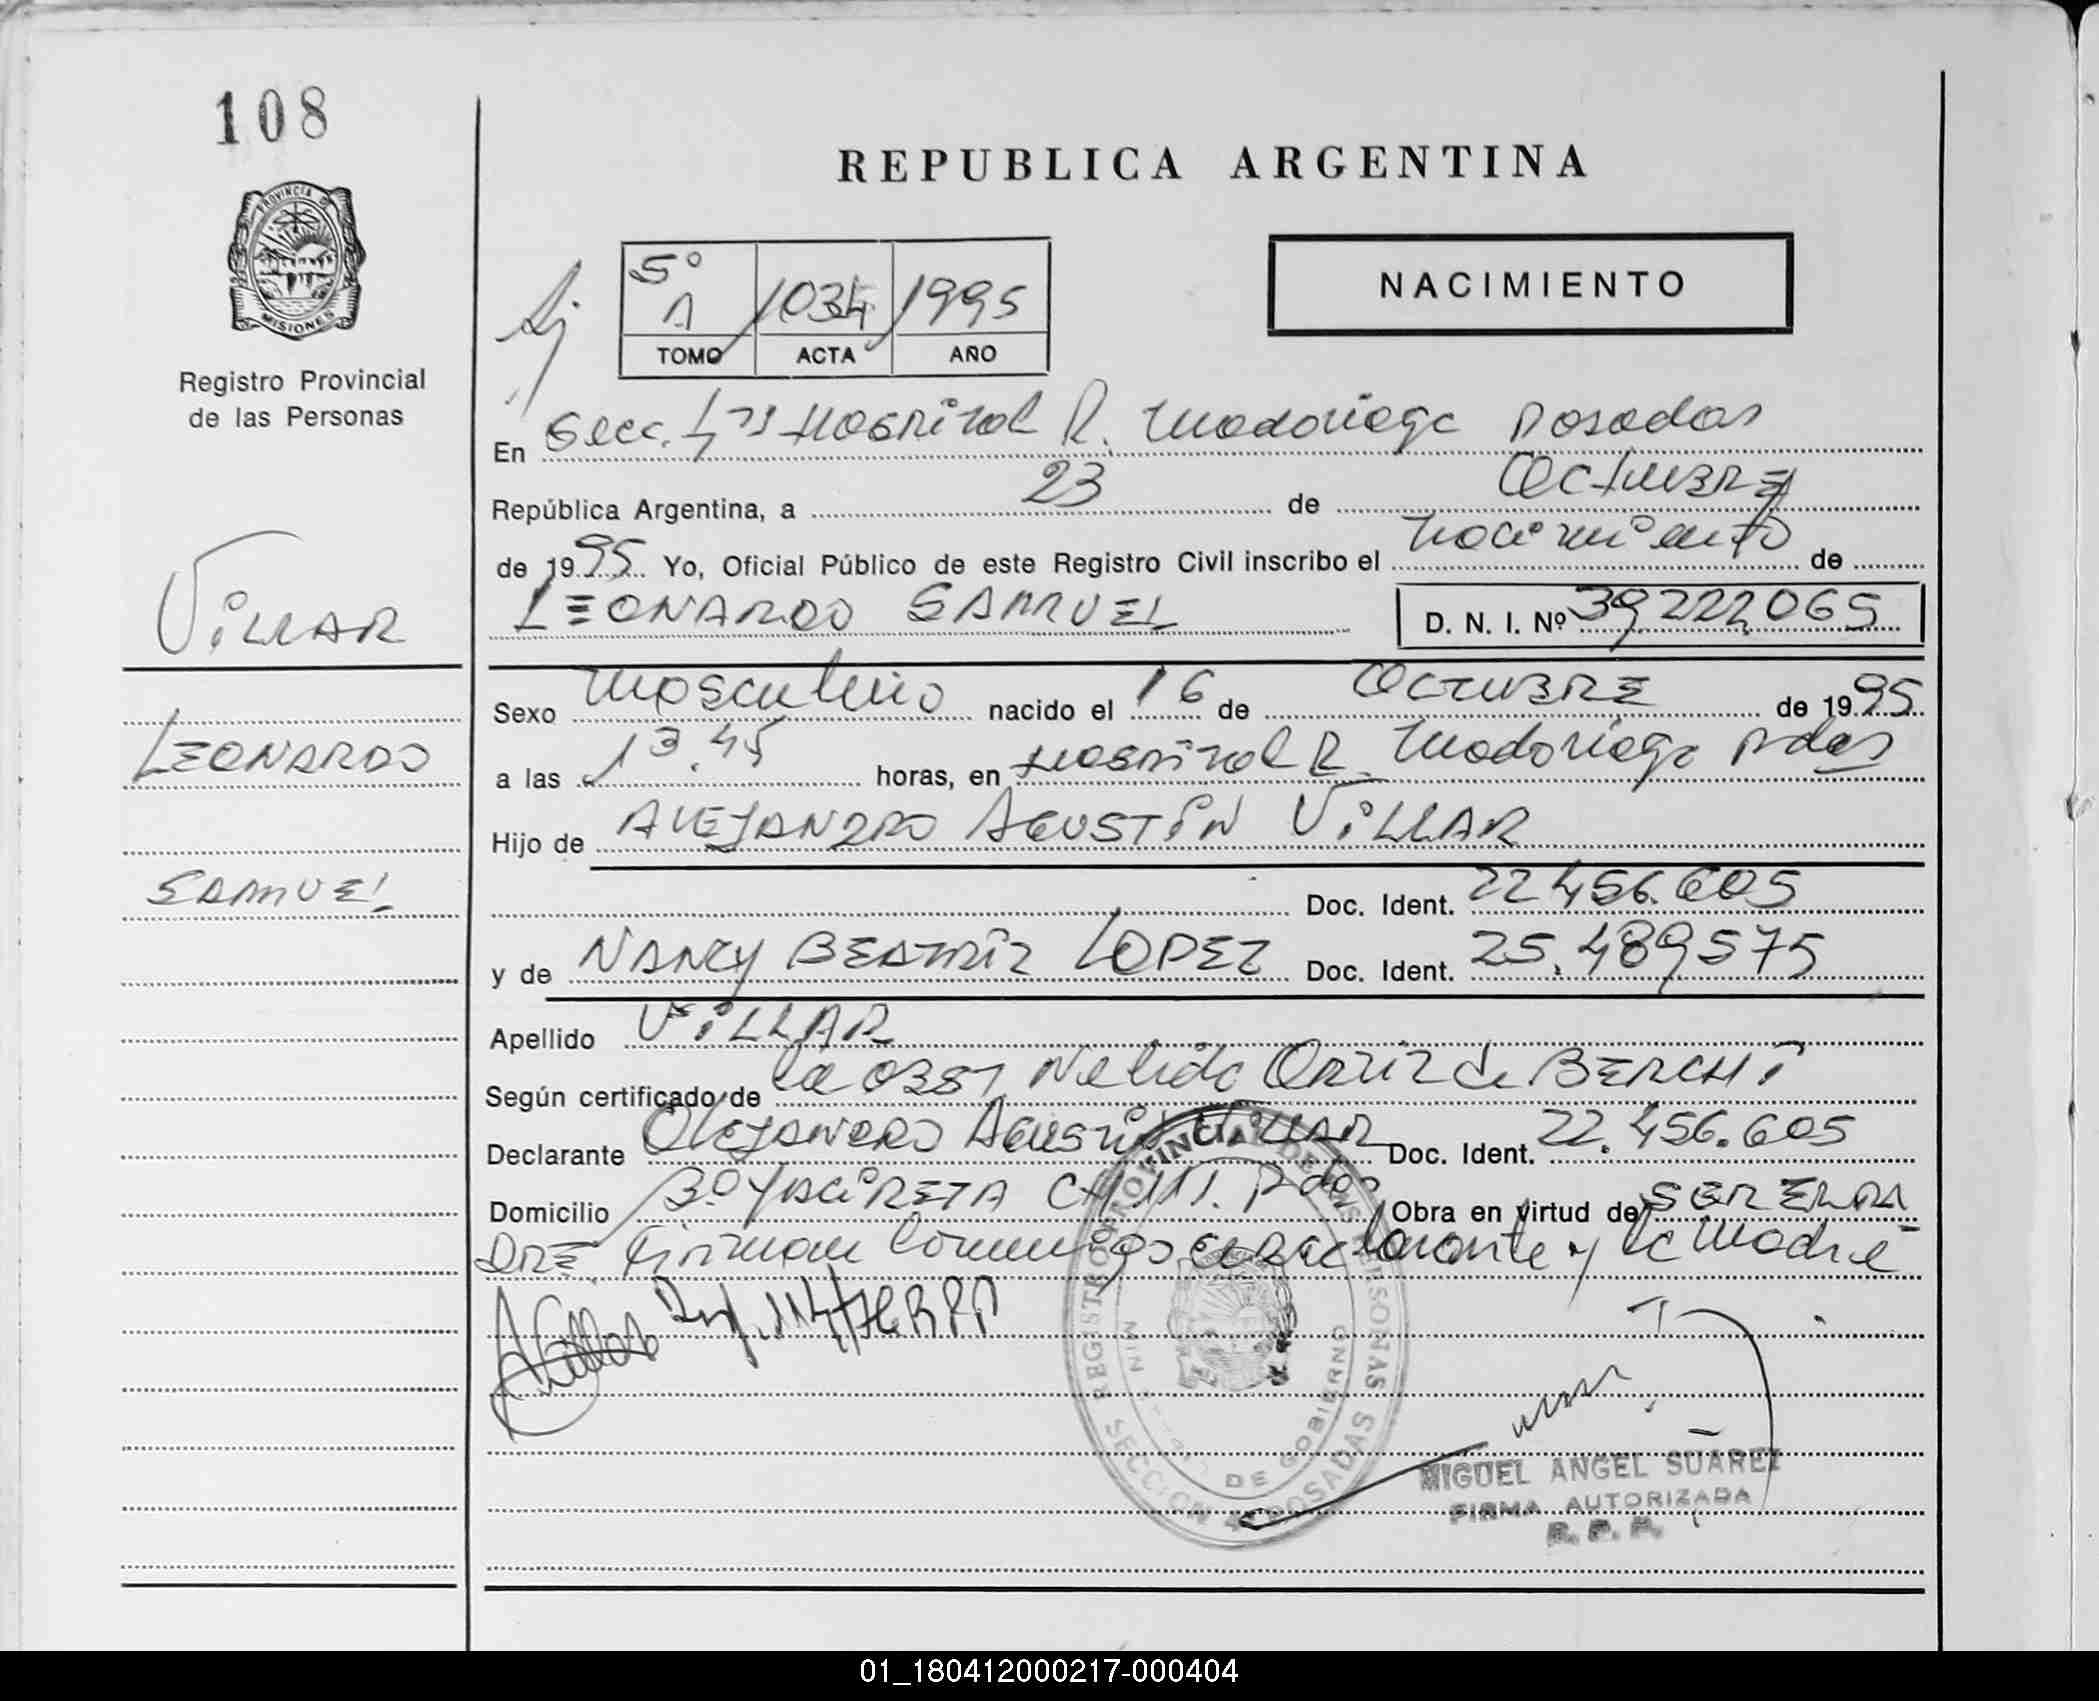 108
PROVINCIA DE
MISIONES
Registro Provincial
de las Personas
REPUBLICA ARGENTINA
NACIMIENTO
5º A 1034 1995
TOMO ACTA AÑO
En Secc. Hospital R. Madariaga Posadas
República Argentina, a 23 de Octubre
de 1995 Yo, Oficial Público de este Registro Civil inscribo el nacimiento de
LEONARDO SAMUEL D. N. I. Nº 39222065
VILLAR
LEONARDO
SAMUEL
Sexo Masculino nacido el 16 de OCTUBRE de 1995
a las 13.45 horas, en Hospital R. Madariaga Pdas
Hijo de ALEJANDRO AGUSTIN VILLAR
Doc. Ident. 22456.605
y de NANCY BEATRIZ LOPEZ Doc. Ident. 25.489575
Apellido VILLAR
Según certificado de la OBST Nelida Ortiz de BERCHI
Declarante Alejandro Agustin VILLAR Doc. Ident. 22.456.605
Domicilio Bº YACIRETA CH 111. Pdas Obra en virtud de SER EL PA
DRE Firman conmigo el declarante y la Madre
REGISTRO PROVINCIAL DE LAS PERSONAS
DE GOBIERNO
SECCION POSADAS
MIGUEL ANGEL SUAREZ
FIRMA AUTORIZADA
R. P. P.
01_180412000217-000404